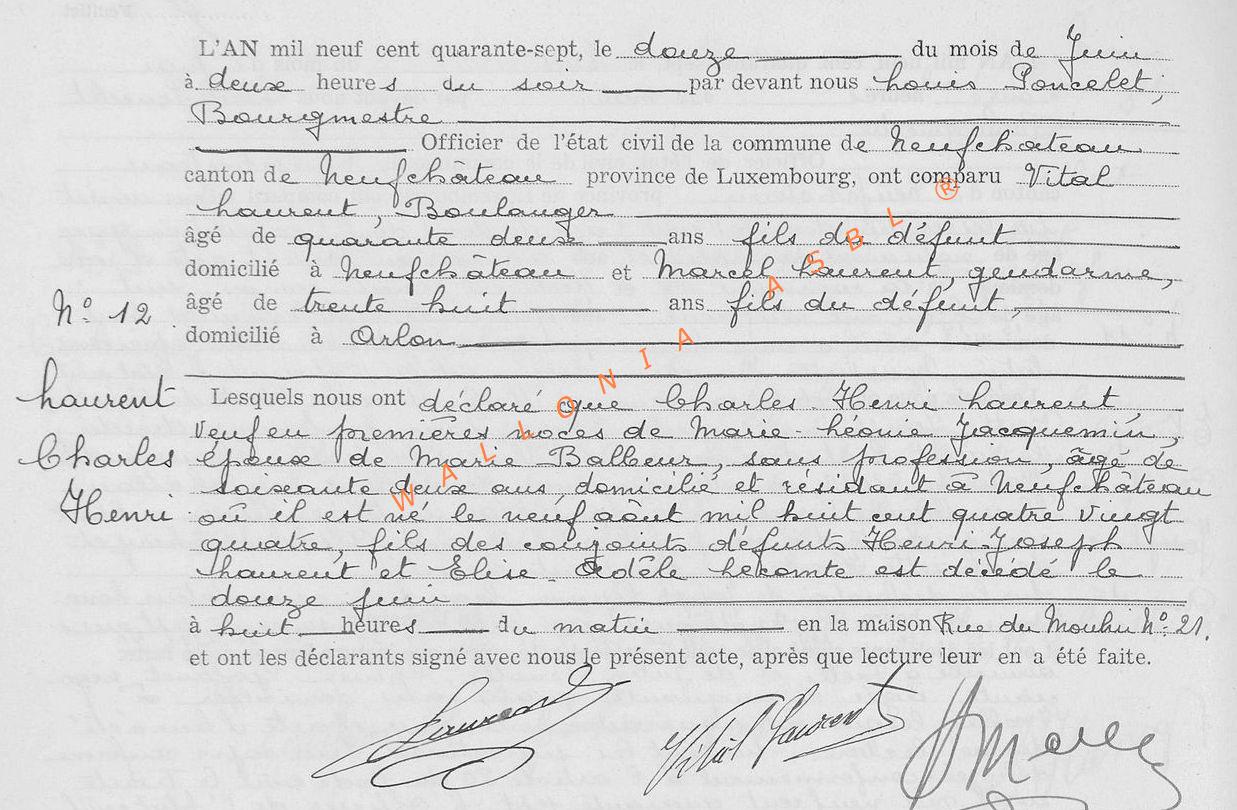 L'AN mil neuf cent quarante-sept, le douze du mois de Juin
à deux heures du soir par devant nous Louis Poncelet,
Bourgmestre
Officier de l'état civil de la commune de Neufchâteau
canton de Neufchâteau province de Luxembourg, ont comparu Vital
Laurent, Boulanger
âgé de quarante deux ans fils du défunt
domicilié à Neufchâteau et Marcel Laurent, gendarme,
âgé de trente huit ans fils du défunt,
N° 12
domicilié à Arlon
Laurent
Charles
Henri
Lesquels nous ont déclaré que Charles Henri Laurent,
veuf en premières noces de Marie Léonie Jacquemin,
époux de Marie Balbeur, sans profession, âgé de
soixante deux ans, domicilié et résidant à Neufchâteau
où il est né le neuf août mil huit cent quatre vingt
quatre, fils des conjoints défunts Henri Joseph
Laurent et Elise Adèle Lecomte est décédé le
douze juin
à huit heures du matin en la maison Rue du Moulin N° 21.
et ont les déclarants signé avec nous le présent acte, après que lecture leur en a été faite.
Vital Laurent
WALLONIA ASBL ®